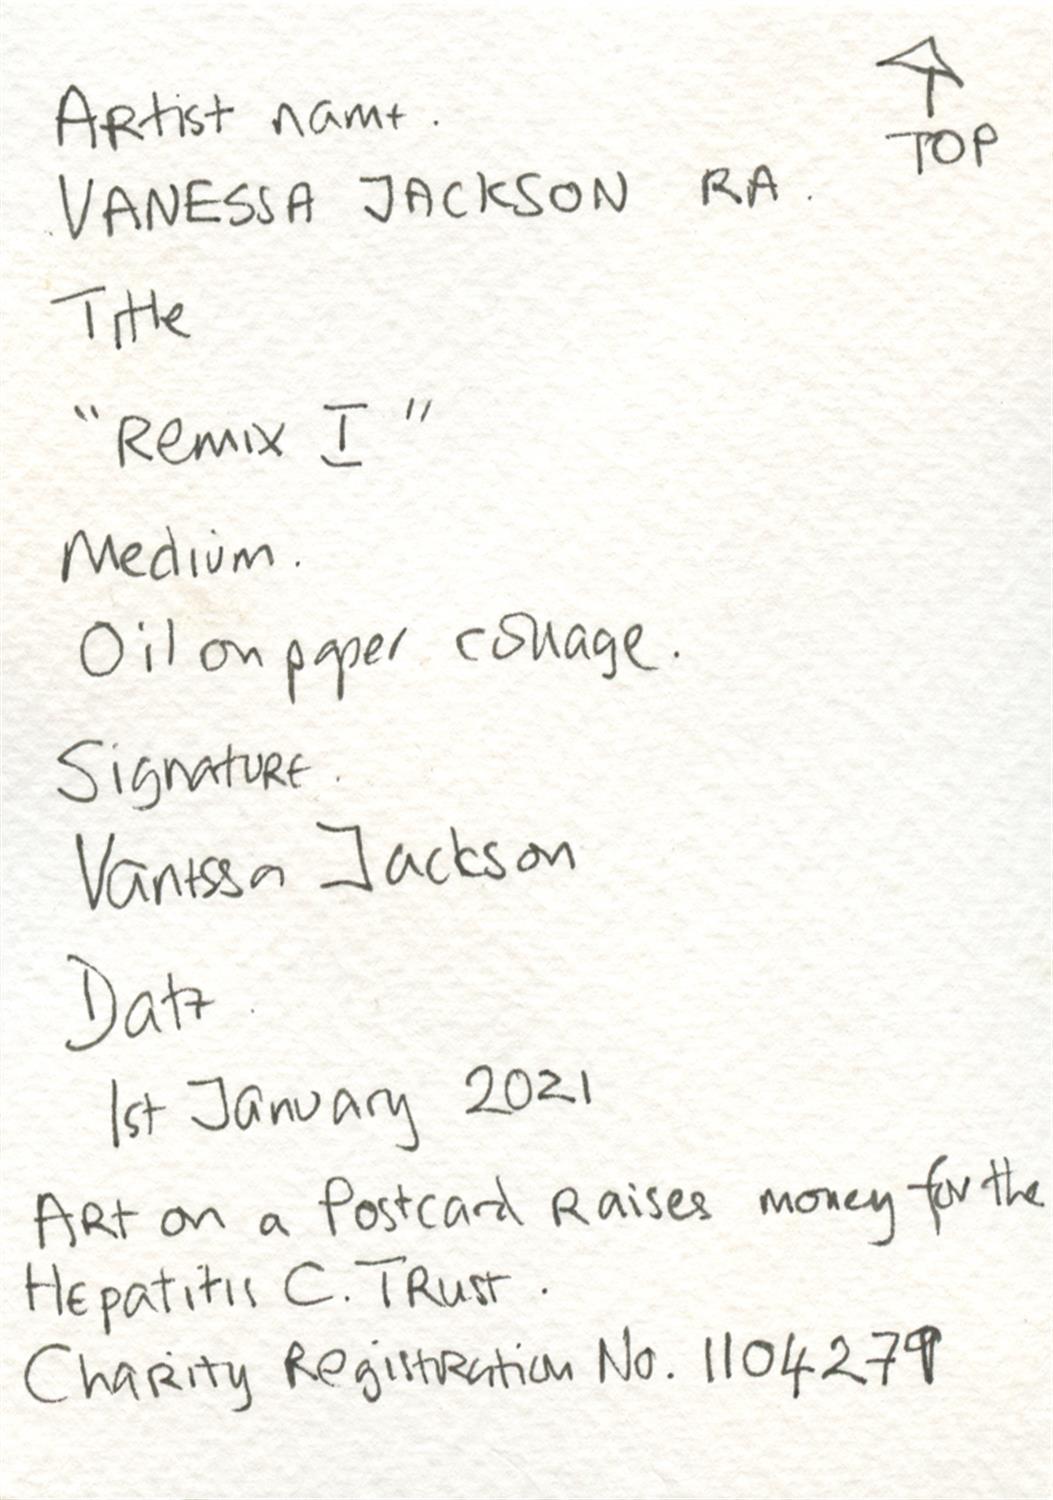 TOP
Artist name.
VANESSA JACKSON RA.
Title
"Remix I"
Medium.
Oil on paper collage.
Signature.
Vanessa Jackson
Date
1st January 2021
Art on a Postcard Raises money for the
Hepatitis C. Trust.
Charity Registration No. 1104279